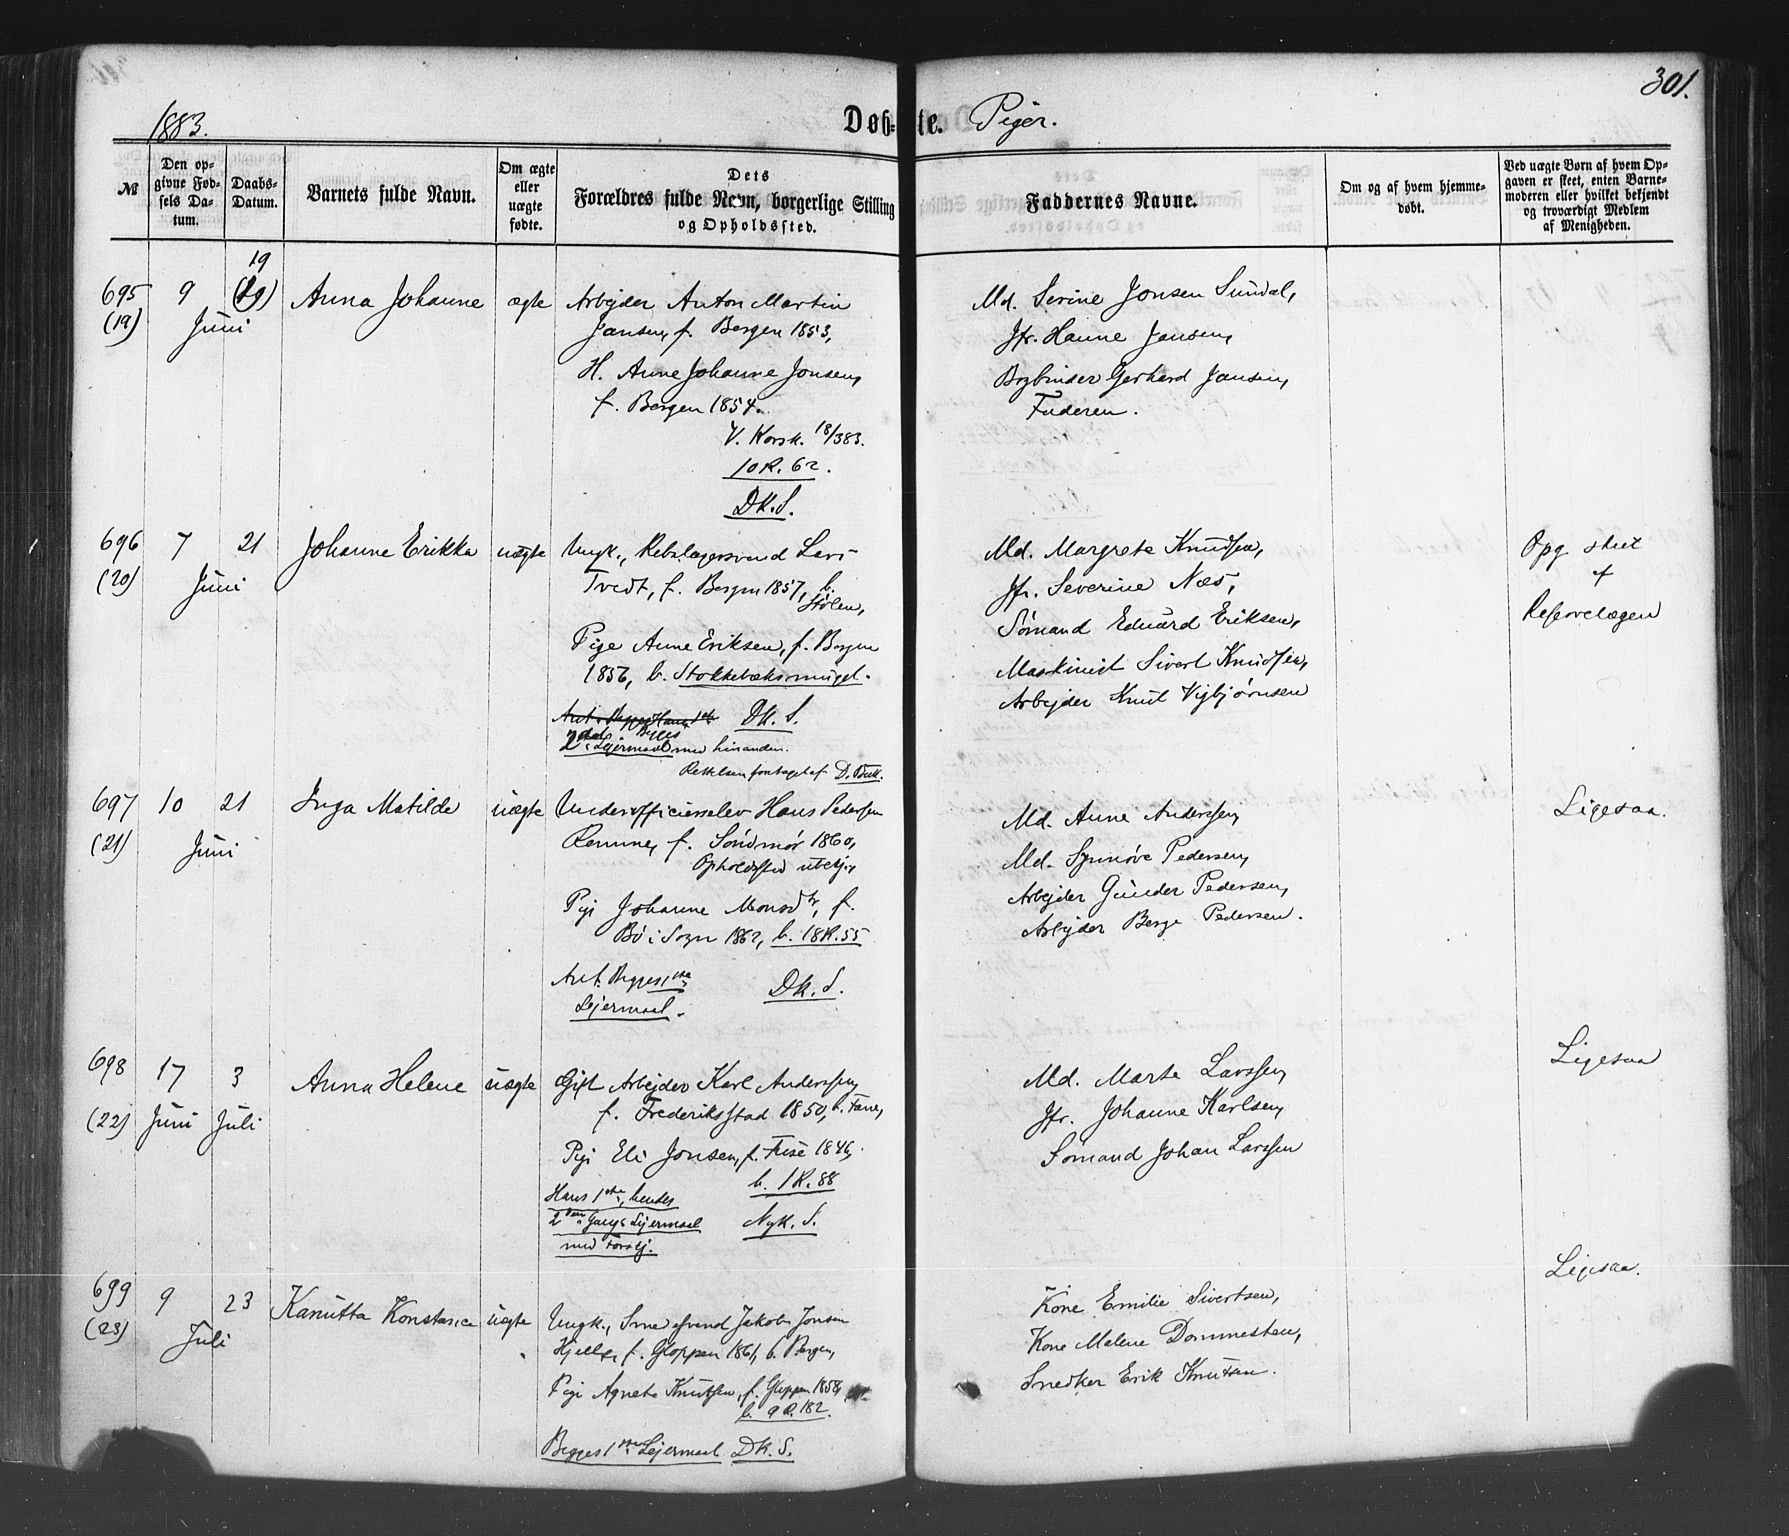 301.
1883. Døbte. Piger.
№
Den opgivne Fødsels Datum.
Daabs-Datum.
Barnets fulde Navn.
Om ægte eller uægte fødte.
Dets Forældres fulde Navn, borgerlige Stilling og Opholdssted.
Faddernes Navne.
Om og af hvem hjemmedøbt.
Ved uægte Børn af hvem Opgaven er skeet, enten Barnemoderen eller hvilket bekjendt og troværdigt Medlem af Menigheden.
695 (19)
9 19 (19) Juni
Anna Johanne
ægte
Arbejder Anton Martin
Jansen, f. Bergen 1853,
H. Anne Johanne Jonsen,
f. Bergen 1854.
V. Korsk. 18/3 83.
10 R. 62.
DK. S.
Md. Serine Jonsen Sundal,
Jfr. Hanne Jansen,
Bogbinder Gerhard Jansen,
Faderen.
696 (20)
7 21 Juni
Johanne Erikka
uægte
Ungk., Rebslagersvend Lars
Tvedt, f. Bergen 1857, b.
Stølen,
Pige Anne Eriksen, f. Bergen
1856, b. Stokkebæksmuget.
DK. S.
Begges
2det Lejermaal med hinanden.
Rettelsen foretaget af D. Bull.
Md. Margrete Knudsen,
Jfr. Severine Næs,
Sømand Eduard Eriksen,
Maskinist Sivert Knudsen,
Arbejder Knut Vigbjørnsen
Opg skeet
af
Reservelægen
697 (21)
10 21 Juni
Inga Matilde
uægte
Underofficierselev Hans Pedersen
Remme, f. Søndmør 1860,
Opholdssted ubekj.,
Pige Johanne Monsdtr, f.
Bø i Sogn 1862, b. 18 R. 55
Ant. Begges 1ste
Lejermaal.
DK. S.
Md. Anne Andersen,
Md. Synnøve Pedersen,
Arbejder Gunder Pedersen,
Arbejder Berge Pedersen.
Ligesaa.
698 (22)
17 Juni 3 Juli
Anna Helene
uægte
Gift Arbejder Karl Anderssen,
f. Frederiksstad 1850, b. Fane,
Pige Eli Jonsen, f. Fuse 1846,
b. 1 R. 88
Hans 1ste, hendes
2den Gangs Lejermaal
med Forskj.
Nyk. S.
Md. Marte Larssen,
Jfr. Johanne Karlsen,
Sømand Johan Larssen
Ligesaa
699 (23)
9 23 Juli
Kanutta Konstance
uægte
Ungk., Smedsvend Jakob Jonsen
Hjelle, f. Gloppen 1861, b. Bergen,
Pige Agnete Knutsen, f. Gloppen 1858,
b. 9 R. 182.
Begges 1ste Lejermaal. DK. S.
Kone Emilie Sivertsen,
Kone Malene Dommesten,
Snedker Erik Knutsen.
Ligesaa.